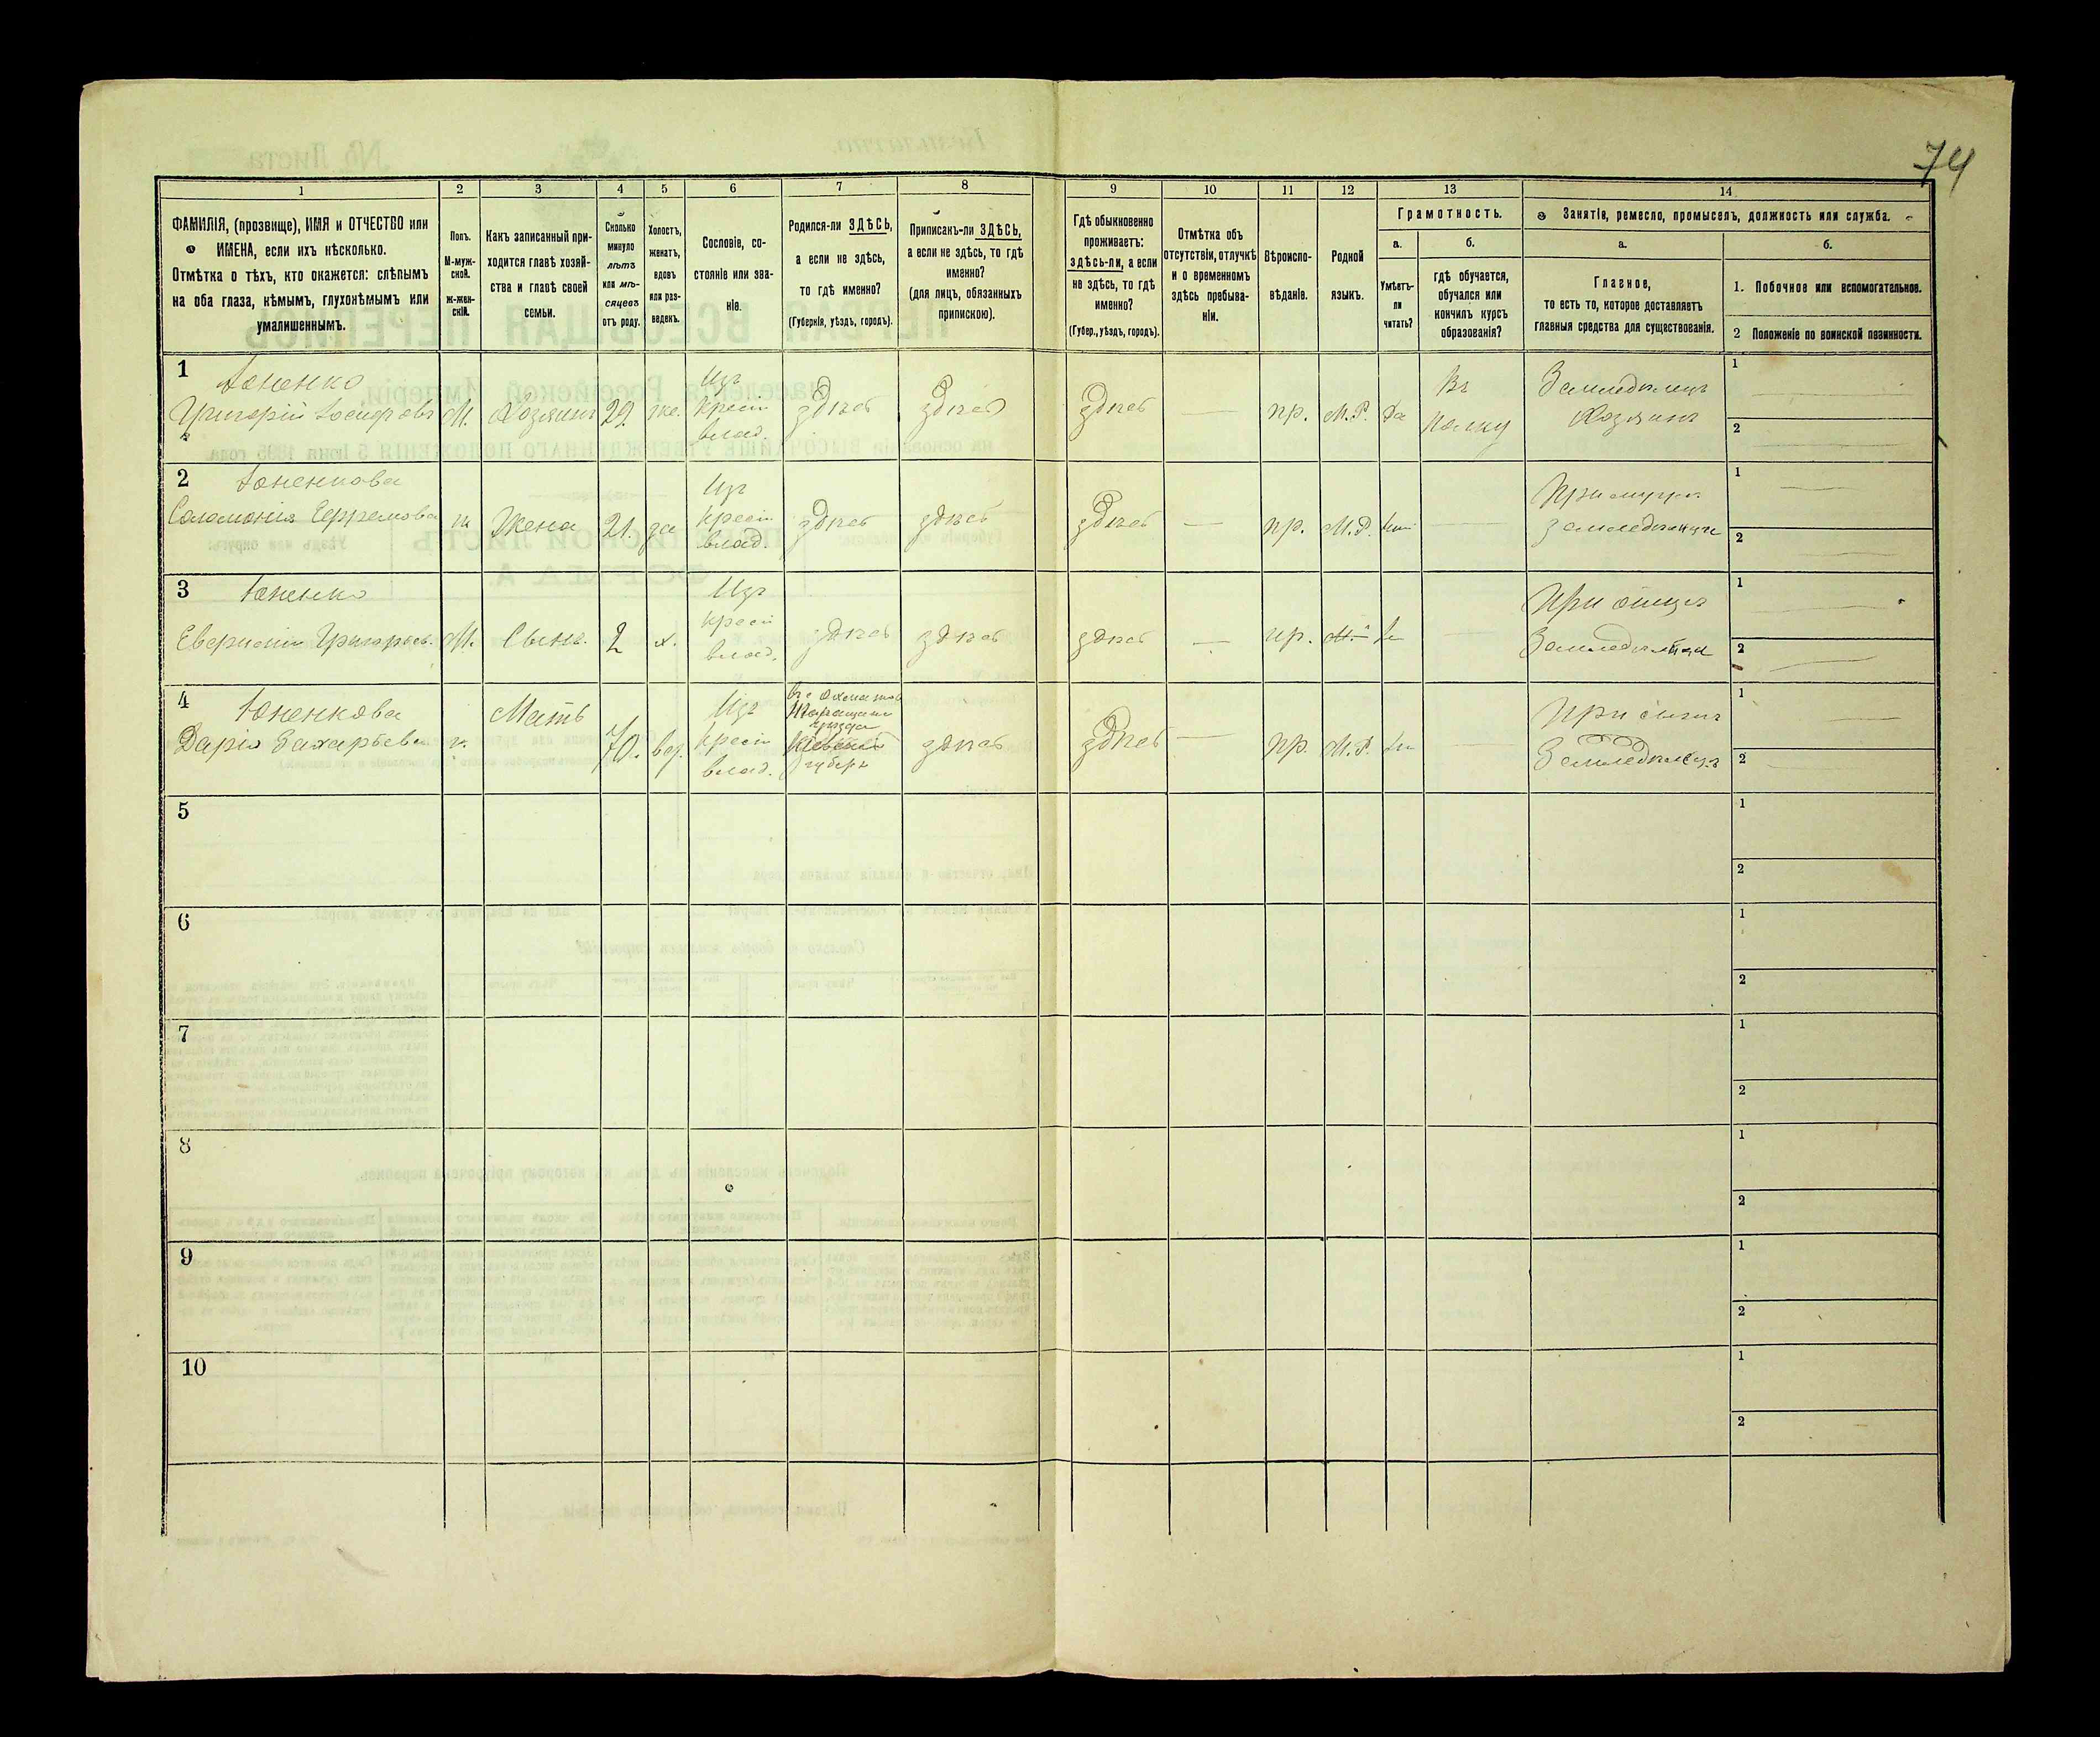 74
1 2 3 4 5 6 7 8 9 10 11 12 13 14
ФАМИЛІЯ, (прозвище), ИМЯ и ОТЧЕСТВО или
ИМЕНА, если ихъ нѣсколько.
Отмѣтка о тѣхъ, кто окажется: слѣпымъ
на оба глаза, нѣмымъ, глухонѣмымъ или
умалишеннымъ.
Полъ.
М-муж-
ской.
ж-жен-
скій.
Какъ записанный при-
ходится главѣ хозяй-
ства и главѣ своей
семьи.
Сколько
минуло
лѣтъ
или мѣ-
сяцевъ
отъ роду.
Холостъ,
женатъ,
вдовъ
или раз-
веденъ.
Сословіе, со-
стояніе или зва-
ніе.
Родился-ли ЗДѢСЬ,
а если не здѣсь,
то гдѣ именно?
(Губернія, уѣздъ, городъ).
Приписанъ-ли ЗДѢСЬ,
а если не здѣсь, то гдѣ
именно?
(для лицъ, обязанныхъ
припискою).
Гдѣ обыкновенно
проживаетъ:
здѣсь-ли, а если
не здѣсь, то гдѣ
именно?
(Губер., уѣздъ, городъ).
Отмѣтка объ
отсутствіи, отлучкѣ
и о временномъ
здѣсь пребыва-
ніи.
Вѣроиспо-
вѣданіе.
Родной
языкъ.
Грамотность.
а.
Умѣетъ-
ли
читать?
б.
гдѣ обучается,
обучался или
кончилъ курсъ
образованія?
Занятіе, ремесло, промыселъ, должность или служба.
а.
Главное,
то есть то, которое доставляетъ
главныя средства для существованія.
б.
1. Побочное или вспомогательное.
2 Положеніе по воинской повинности.
1 Юненко
Григорій Іосифовъ М. Хозяинъ 29. же. Изъ
крест
влад. здѣсь здѣсь здѣсь — пр. М.Р. да Въ
полку Земледѣлецъ
Хозяинъ 1
2
2 Юненкова
Саломонія Ефремова ж Жена 21. за Изъ
крест
влад. здѣсь здѣсь здѣсь — пр. М.Р. — При мужѣ
земледѣльцѣ 1
2
3 Юненко
Григорьев. М. Сынъ. 2 х. Изъ
крест
влад. здѣсь здѣсь здѣсь — пр. — При отцѣ
Земледѣльцѣ 1
2
4 Юненкова
Дарія Захарьева ж. Мать 70. вд. Изъ
крест
влад. Таращан
уѣзда
Кіевской
губерн здѣсь здѣсь — пр. М.Р. — При сынѣ
Земледѣльцѣ 1
2
5 1
2
6 1
2
7 1
2
8 1
2
9 1
2
10 1
2